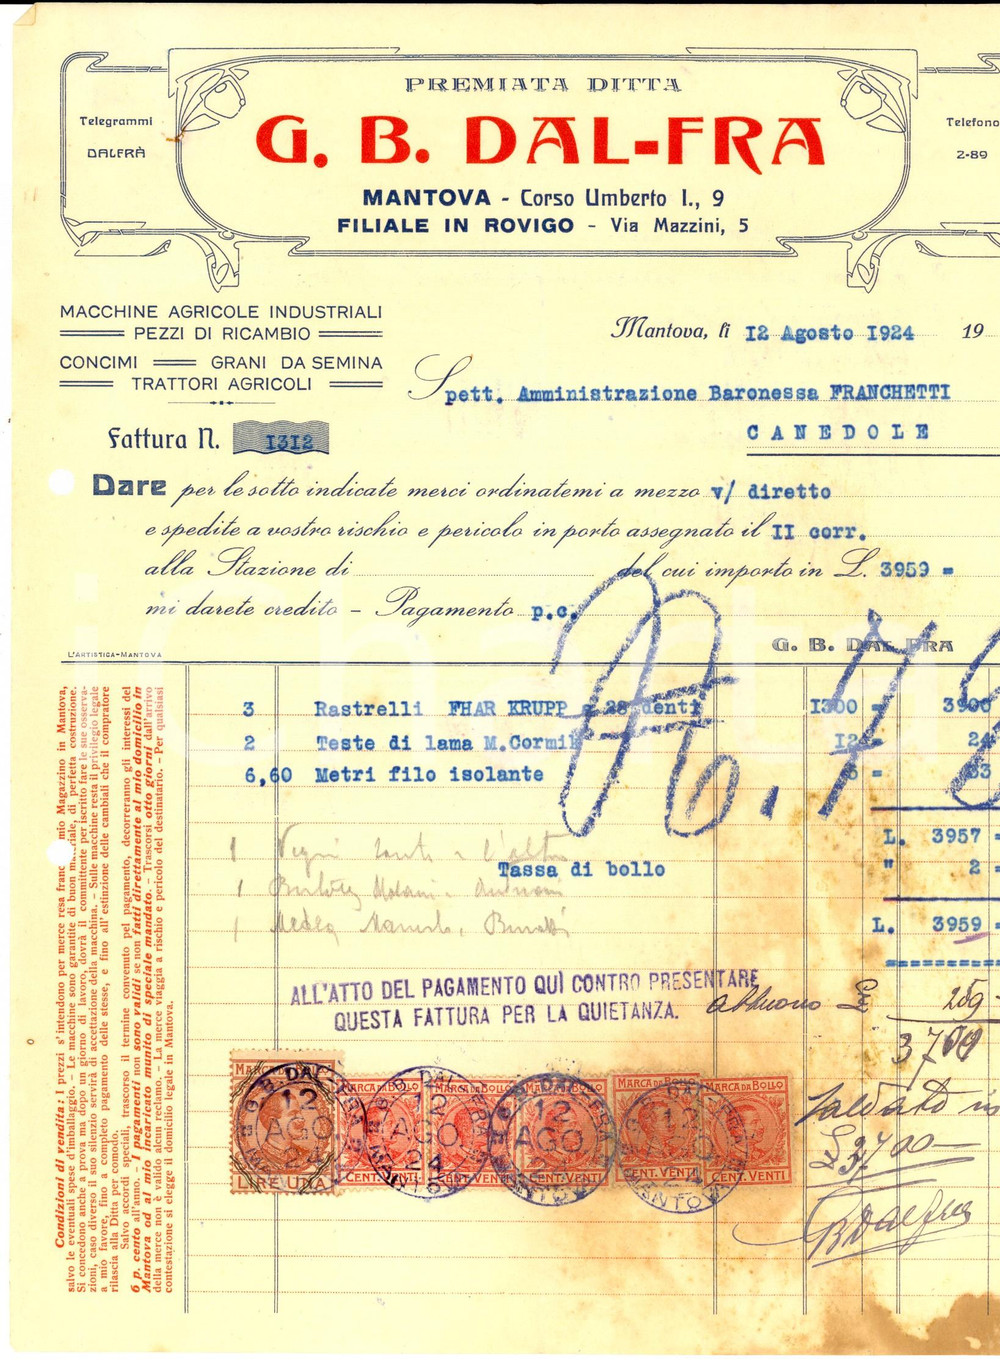 PREMIATA DITTA
G. B. DAL-FRA
MANTOVA - Corso Umberto I., 9
FILIALE IN ROVIGO - Via Mazzini, 5
Telegrammi
DALFRÀ
Telefono
2-89
MACCHINE AGRICOLE INDUSTRIALI
PEZZI DI RICAMBIO
CONCIMI GRANI DA SEMINA
TRATTORI AGRICOLI
Mantova, lì 12 Agosto 1924 19
Spett. Amministrazione Baronessa FRANCHETTI
CANEDOLE
Fattura N. 1312
Dare per le sotto indicate merci ordinatemi a mezzo v/ diretto
e spedite a vostro rischio e pericolo in porto assegnato il II corr.
alla Stazione di del cui importo in L. 3959 =
mi darete credito - Pagamento p.c.
G. B. DAL FRA
L'ARTISTICA-MANTOVA
3 Rastrelli FHAR KRUPP = 28 denti 1300 = 3900
2 Teste di lama M.Cormik 12 24
6,60 Metri filo isolante = 33
L. 3957 =
Tassa di bollo " 2 =
L. 3959 =
ALL'ATTO DEL PAGAMENTO QUÌ CONTRO PRESENTARE
QUESTA FATTURA PER LA QUIETANZA.
abbuono 259
3700
Saldato in
£ 3700
GB Dal fra
MARCA DA BOLLO
LIRE UNA
MARCA DA BOLLO
CENT. VENTI
MARCA DA BOLLO
CENT. VENTI
MARCA DA BOLLO
CENT. VENTI
MARCA DA BOLLO
CENT. VENTI
G. B. DAL-FRA
12 AGO 24
MANTOVA
Condizioni di vendita: I prezzi s'intendono per merce resa franc mio Magazzino in Mantova,
salvo le eventuali spese d'imballaggio. - Le macchine sono garantite di buon materiale, di perfetta costruzione.
Si concedono anche a prova ma dopo un giorno di lavoro, dovrà il committente per iscritto fare le sue osserva-
zioni, caso diverso il suo silenzio servirà di accettazione della macchina. - Sulle macchine resta il privilegio legale
a mio favore, fino a completo pagamento delle stesse, e fino all'estinzione delle cambiali che il compratore
rilascia alla Ditta per comodo.
Salvo accordi speciali, trascorso il termine convenuto pel pagamento, decorreranno gli interessi del
6 p. cento all'anno. - I pagamenti non sono validi se non fatti direttamente al mio domicilio in
Mantova od al mio incaricato munito di speciale mandato. - Trascorsi otto giorni dall'arrivo
della merce non è valido alcun reclamo. - La merce viaggia a rischio e pericolo del destinatario. - Per qualsiasi
contestazione si elegge il domicilio legale in Mantova.